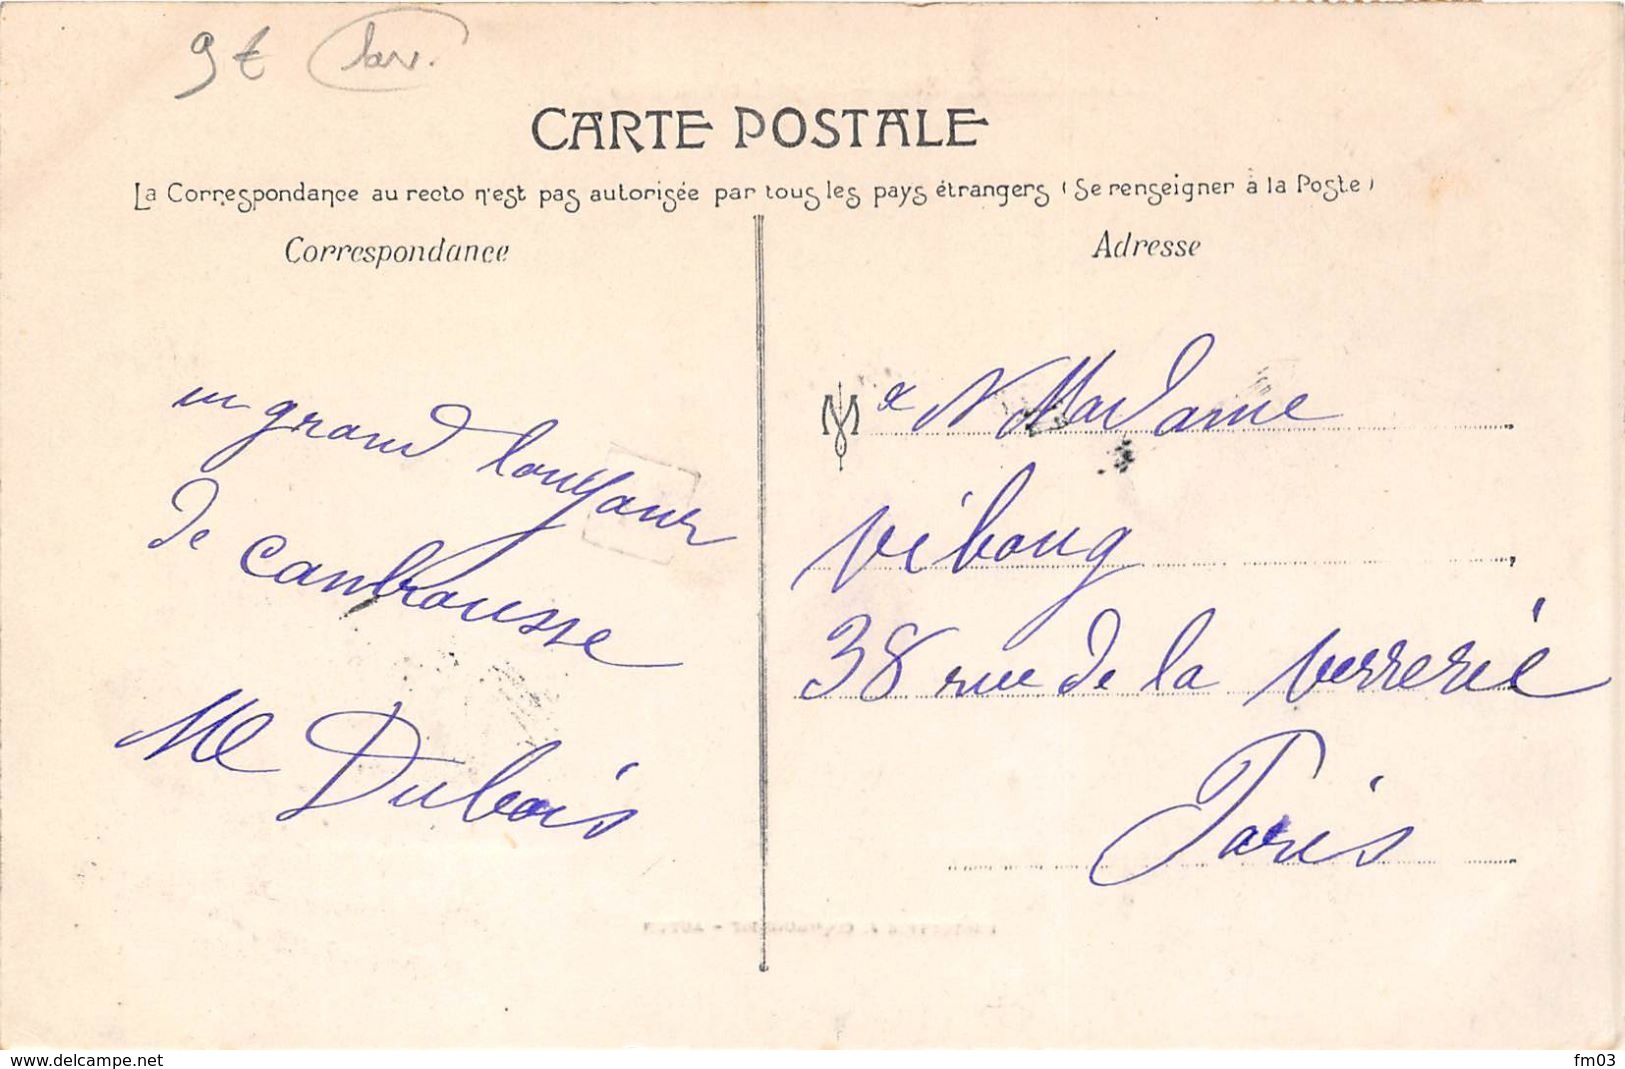 9 €
CARTE POSTALE
La Correspondance au recto n'est pas autorisée par tous les pays étrangers (Se renseigner à la Poste)
Correspondance
Adresse
un grand
de
Me Dubois
M
Madame
Viboug
38 rue de la Verrerie
Paris
www.delcampe.net
fm03